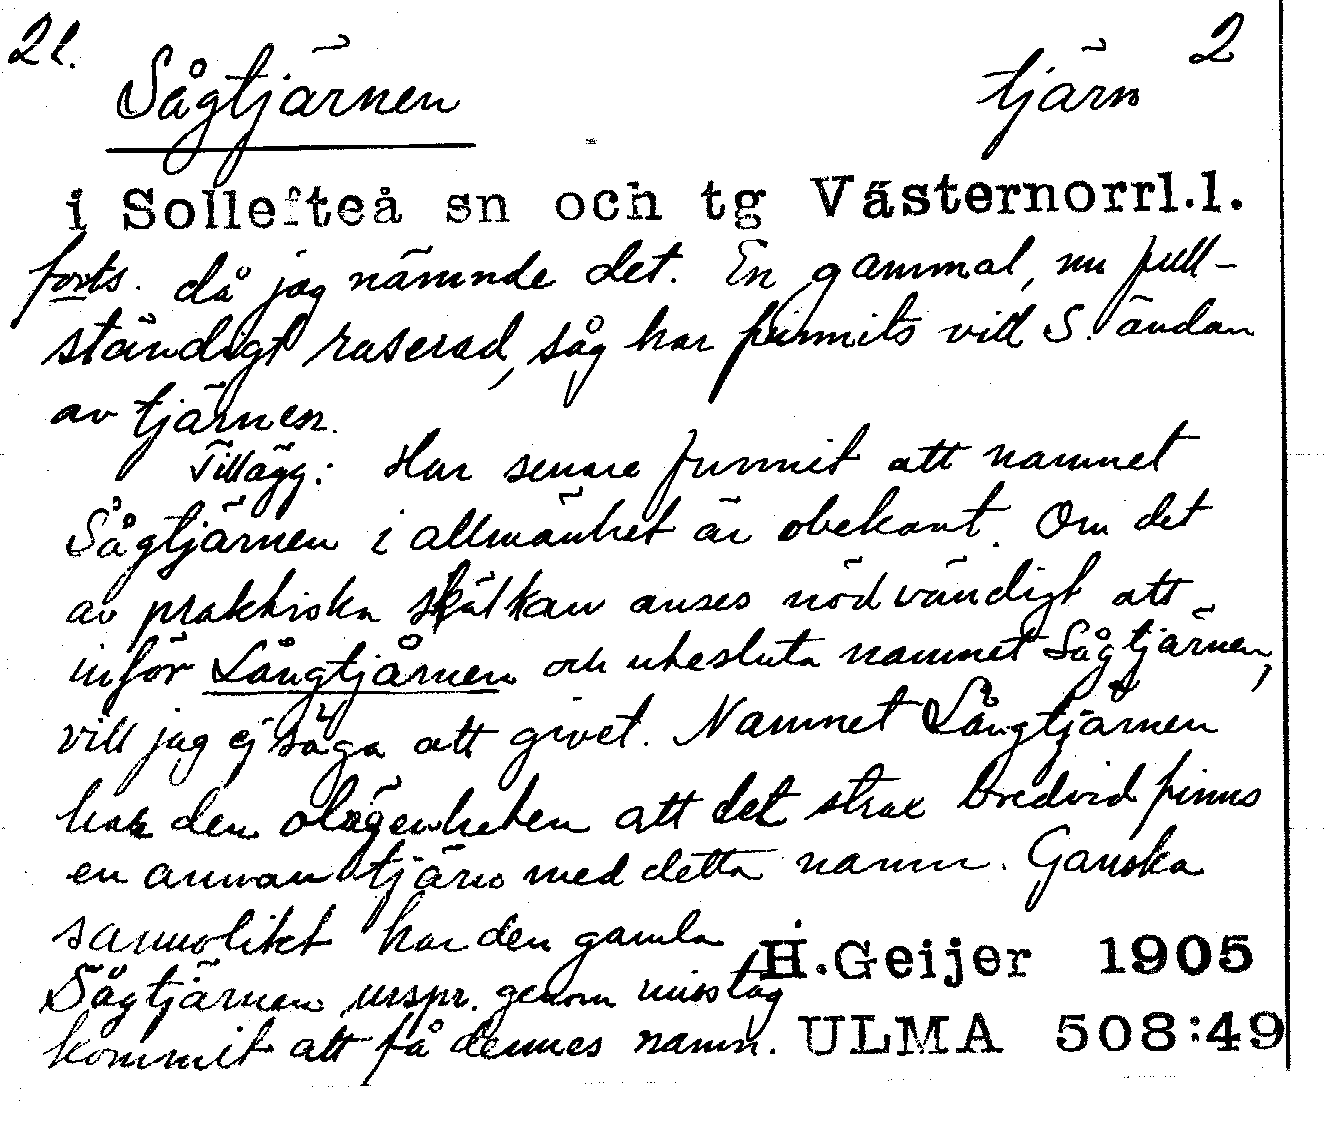 2l. Sågtjärnen tjärn 2
i Sollefteå sn och tg Västernorrl.l.
forts. då jag nämnde det. En gammal, nu full-
ständigt raserad, såg har funnits vid S. ändan
av tjärnen.
Tillägg: Har senare funnit att namnet
Sågtjärnen i allmänhet är obekant. Om det
av praktiska skäl kan anses nödvändigt att
inför Långtjärnen och utesluta namnet Sågtjärnen,
vill jag ej säga att givet. Namnet Långtjärnen
har den olägenheten att det strax bredvid finns
en annan tjärn med detta namn. Ganska
sannolikt har den gamla
Sågtjärnen urspr. genom misstag
kommit att få dennes namn.
H.Geijer 1905
ULMA 508:49